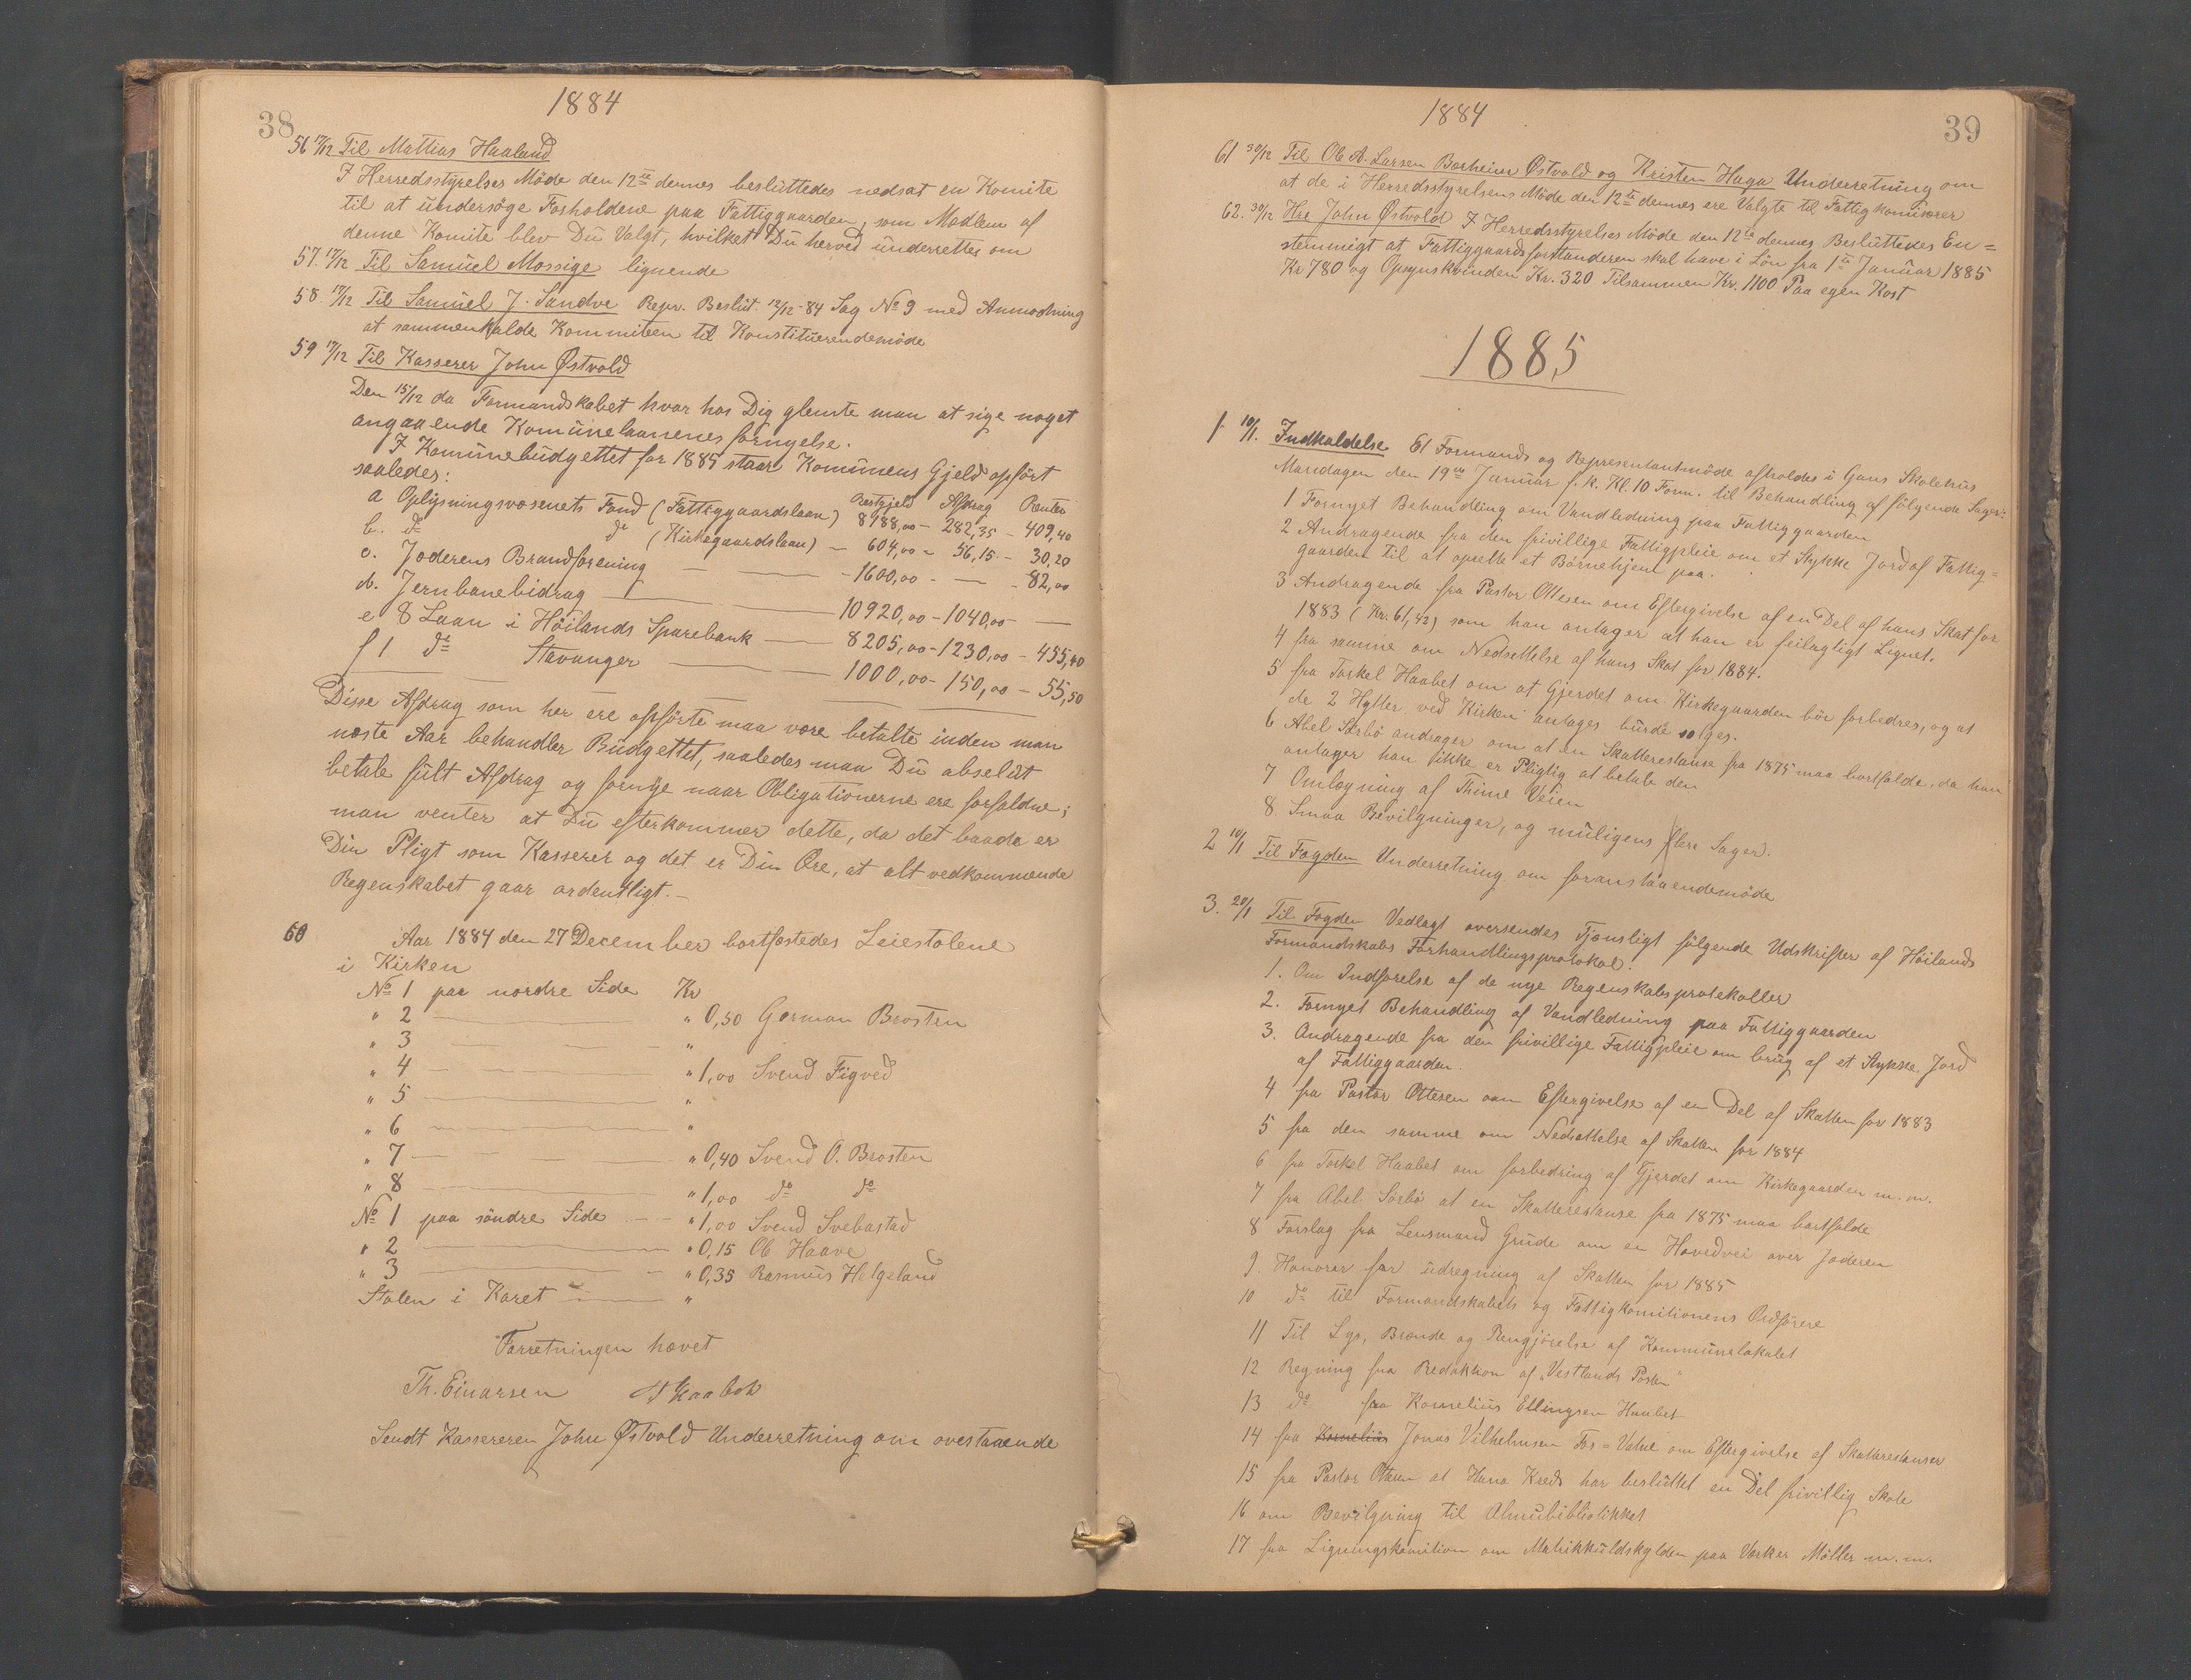 38
1884
56 17/12 Til Mattias Haaland
I Herredsstyrelses Möde den 12te dennes besluttedes nedsat en Komite
til at undersöge Forholdene paa Fattiggaarden, som Medlem af
denne Komite blev Du Valgt, hvilket Du herved underrettes om
57. 17/12 Til Samuel Mossige lignende
58. 17/12 Til Samuel J. Sandve Repr. Beslut. 12/12-84 Sag No 9 med Anmodning
at sammenkalde Kommiteen til Konstituerendemöde
59 17/12 Til Kasserer John Østvold
Den 15/12 da Formandskabet hvar hos Dig glemte man at sige noget
angaaende Komunelaanenes fornyelse.
I Komunebudgettet for 1885 staar Komunens Gjeld opfört
saaledes:
Restgjeld Afdrag Renter
a Oplysningsvæsenets Fond (Fattiggaardslaan) 8188,00 - 282,35 - 409,40
b. do do (Kirkegaardslaan) - 604,00 - 56,15 - 30,20
c. Jæderens Brandforening - 1600,00 - — - 82,00
d. Jernbanebidrag 10920,00 - 1040,00 —
e 8 Laan i Höilands Sparebank 8205,00 - 1230,00 - 455,40
f 1 do Stavanger 1000,00 - 150,00 - 55,50
Disse Afdrag som her ere opförte maa være betalte inden man
næste Aar behandler Budgettet, saaledes maa Du absolut
betale fült Afdrag og fornye naar Obligationerne ere forfaldne;
man venter at Du efterkommer dette, da det baade er
Din Pligt som Kasserer og det er Din Ære, at alt vedkommende
Regenskabet gaar ordentligt.-
60 Aar 1884 den 27 December bortfæstedes Leiestolene
i Kirken
No 1 paa nordre Side Kr
" 2 " 0,50 Gorman Brosten
" 3 "
" 4 " 1,00 Svend Figved
" 5 "
" 6 "
" 7 " 0,40 Svend O. Brosten
" 8 " 1,00 do do
No 1 paa söndre Side " 1,00 Svend Svebastad
" 2 " 0,15 Ole Haave
" 3 " 0,35 Rasmus Helgeland
Stolen i Koret "
Forretningen hævet
Th. Einarsen
Sendt Kassereren John Østvold Underretning om ovestaaende
39
1884
61 30/12 Til Ole A. Larsen Borheim Østvold og Kristen Haga Underretning om
at de i Herredsstyrelsens Möde den 12te dennes ere Valgte til Fattigkomisærer
62. 30/12 Hre John Østvold I Herredsstyrelses Möde den 12te dennes Besluttedes En=
stemmigt at Fattiggaardsforstanderen skal have i Lön fra 1te Januar 1885
Kr 780 og Opsynskvinden Kr. 320 Tilsammen Kr. 1100 Paa egen Kost
1885
1 10/1. Indkaldelse Et Formands og Representantmöde afholdes i Gans Skolehus
Mandagen den 19de Januar f. k. Kl. 10 Form. til Behandling af fölgende Sager:
1 Fornyet Behandling om Vandledning paa Fattiggaarden
2 Andragende fra den frivillige Fattigpleie om et Stykke Jord af Fattig=
gaarden til at oprette et Börnehjem paa.
3 Andragende fra Pastor Ottesen om Eftergivelse af en Del af hans Skat for
1883 (Kr. 61,42) som han antager at han er feilagtigt Lignet.
4 fra samme om Nedsættelse af hans Skat for 1884.
5 fra Torkel Haabet om at Gjerdet om Kirkegaarden bör forbedres, og at
de 2 Hytter ved Kirken antages burde sælges.
6 Abel Sörbö andrager om at en Skatterestanse fra 1875 maa bortfalde, da han
antager han ikke er Pligtig at betale den
7 Omlægning af Thime Veien
8. Smaa Bevilgninger, og muligens flere Sager.
2 10/1 Til Fogden Underretning om foranstaaendemöde
3. 20/1 Til Fogden Vedlagt oversendes Tjenstligt fölgende Udskrifter af Höilands
Formandskabs Forhandlingsprotokol:
1. Om Indförelse af de nye Regenskabsprotokoller
2. Fornyet Behandling af Vandledning paa Fattiggaarden
3. Andragende fra den frivillige Fattigpleie om brug af et Stykke Jord
af Fattiggaarden.
4 fra Pastor Ottesen om Eftergivelse af en Del af Skatten for 1883
5 fra den samme om Nedsættelse af Skatten for 1884
6 fra Torkel Haabet om forbedring af Gjerdet om Kirkegaarden m.m.
7 fra Abel Sörbö at en Skatterestanse fra 1875 maa bortfalde
8 Forslag fra Lensmand Grude om en Hovedvei over Jæderen
9. Honorar for udregning af Skatten for 1885
10 do til Formandskabets og Fattigkomitionens Ordförere
11 Til Lys, Brænde og Rengjörelse af Kommunelokalet
12 Regning fra Redaktion af "Vestlands Posten"
13 do fra Kornelius Ellingsen Haabet
14 fra Kornelius Jonas Vilhelmsen Fos=Vatne om Eftergivelse af Skatterestanser
15 fra Pastor Ottesen at Hana Kreds har besluttet en Del frivillig Skole
16 om Bevilgning til Almubibliotikket
17 fra Ligningskomition om Matrikkulskylden paa Vasker Möller m.m.